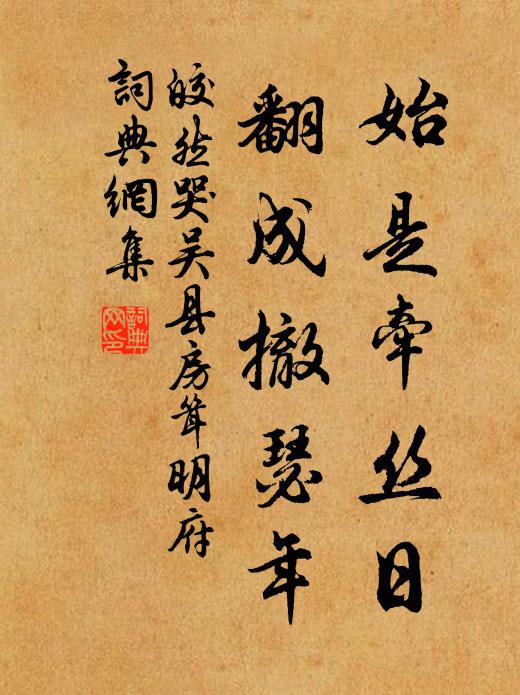 始是牽丝日
翻成撤瑟年
皎然哭吴县房耸明府
詞典網集
詞典網印